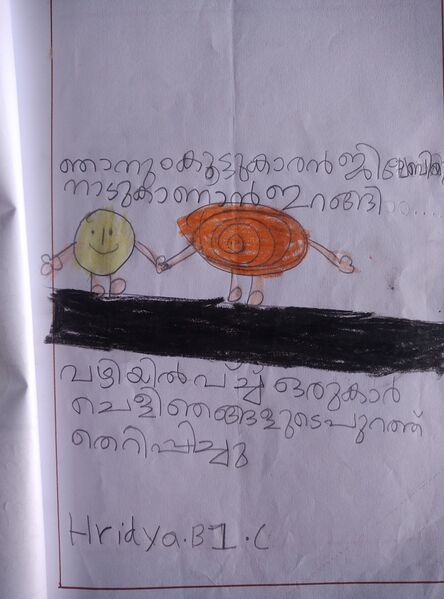 ഞാനും കൂട്ടുകാരൻ ജിലേബിയും
നാടുകാണാൻ ഇറങ്ങി.....
വഴിയിൽ പച്ച് ഒരുകാർ
ചെളി ഞങ്ങളുടെ പുറത്ത്
തെറിപ്പിച്ചു
Hridya.B 1.C